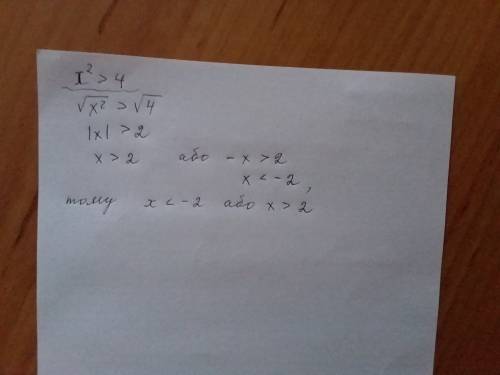 x² > 4
√x² > √4
|x| > 2
x > 2 або - x > 2
x < -2,
тому x < -2 або x > 2